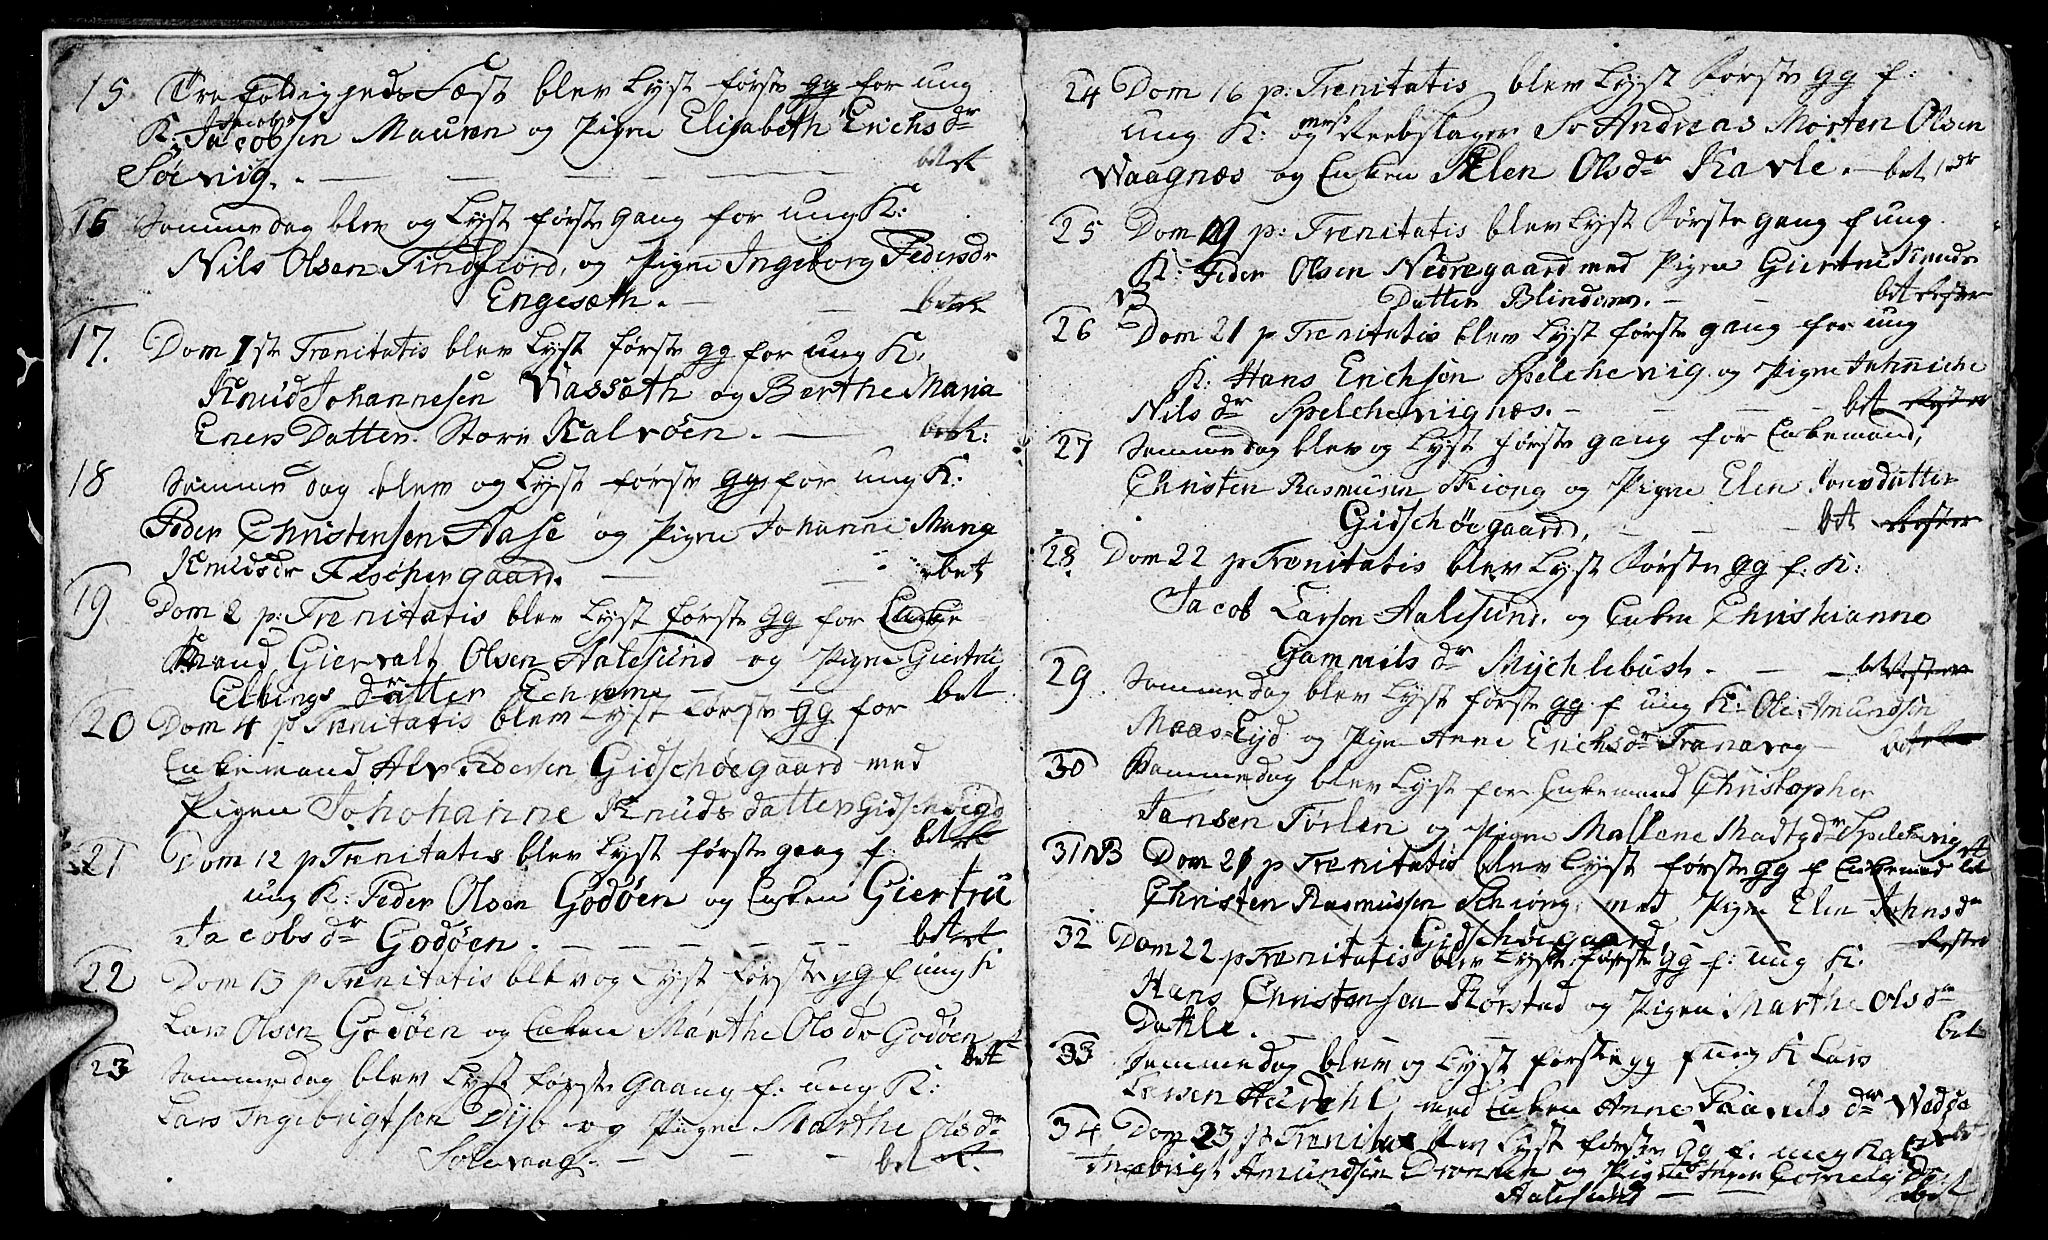 15 Trefoldigheds Fæst blev Lyst første gg for ung
Jacobs
K: Jacobsen Mauren og Pigen Elisabeth Erichsdr
Solevig. bet
16 Samme dag blev og Lyst første gang for ung K:
Nils Olsen Tindfiord, og Pigen Ingeborg Pedersdr
Engesæth. bet
17. Dom 1ste Trenitatis blev Lyst første gg for ung K:
Knud Johannesen Vassæth og Berthe Maria
Eners Datter Store Kalvøen. bet:
18 Samme dag blev og Lyst første gg for ung K:
Peder Christensen Aase og Pigen Johanne Mang
Knudsdr Fischergaard. bet
19 Dom 2 p: Trenitatis blev Lyst første gg for Enke
Mand Giervalt Olsen Aalesund og Pigen Giertru
Ellings datter bet
20 Dom 4 p Trenitatis blev Lyst første gg for
Enkemand Alv Pedersen Gidschøegaard med
Pigen Johohanne Knuds datter Gidschøegd
bet
21 Dom 12 p Trenitatis blev Lyst første gang f:
ung K: Peder Olsen Godøen og Enken Giertru
Jacobsdr Godøen. bet
22 Dom 13 p Trenitatis blev og Lyst første gg f ung K
Lars Olsen Godøen og Enken Marthe Olsdr Godøen
bet
23 Samme dag blev Lyst første gaang f: ung K:
Lars Ingebrigtsen Dyb og Pigen Marthe Olsdr
Solevaag. bet
24 Dom 16 p: Trenitatis blev Lyst første gg f:
ung K: og Reebslager Sr Andreas Morten Olsen
Waagnæs og Enken Elen Olsdr Karle. bet 1 dr
25 Dom 19 p: Trenitatis blev Lyst første gang f ung
K: Peder Olsen Nedregaard med Pigen Giertru Knuds
Datter Blindem. bet Rester
26 Dom 21 p Trenitatis blev Lyst første gang for ung
K: Hans Erichsen Spelchevig og Pigen
Nilsdr Spelchevignæs. bet Rester
27 Samme dag blev og Lyst første gang for Enkemand,
Christen Rasmusen Skiong og Pigen Elen Jons datter
Gidschøegaard, bet Rester
28. Dom 22 p Trenitatis blev Lyst første gg f: K:
Jacob Larsen Aalesund. og Enken Christianne
Gammelsdr Mychlebust. bet Rester
29 Samme dag blev Lyst første gg f ung K: Ole Amundsen
Maas=Eyd og Pigen Anne Erichsdr Tranavog bet
30 Samme dag blev Lyst for Enkemand Christopher
Jansen Torlen og Pigen Mallene Madtzdr Spelchevig
31 NB Dom 21 p Trenitatis blev Lyst første gg f Enkemand bet
Christen Rasmussen Schiong, med Pigen Elen Johnsdr
Gidschøegaard, Rester
32 Dom 22 p Trenitatis blev Lyst første gg f: ung K:
Hans Christensen Rørstad og Pigen Marthe Olsdr
Datle. bet
33 Samme dag blev og Lyst første gg f ung K Lars
Larsen med Enken Anne dr
bet
34 Dom 23 p Trenitat blev Lyst første gg f. ung Kal
Ingebrigt Amundsen og Pigen Inger
Aalesund bet